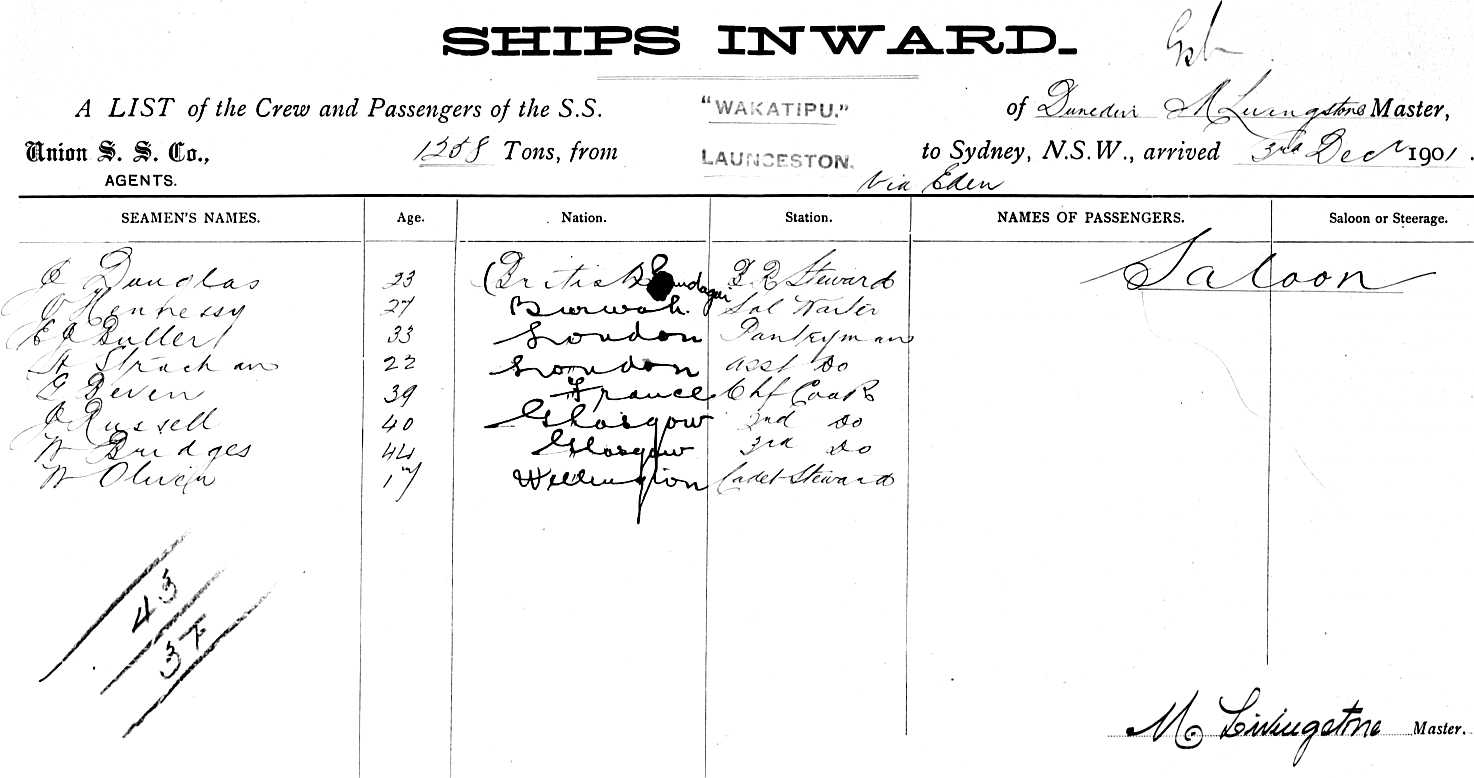 SHIPS INWARD.
A LIST of the Crew and Passengers of the S.S. "WAKATIPU." of Dunedin M Livingstone Master,
Union S. S. Co., 1258 Tons, from LAUNCESTON. to Sydney, N.S.W., arrived 3rd Decr 1901.
AGENTS. Via Eden
SEAMEN'S NAMES. Age. Nation. Station. NAMES OF PASSENGERS. Saloon or Steerage.
J Douglas 23 British Gundagai Steward Saloon
J Hennessy 27 Burwah. Sal Waiter
E J Buller 33 London Pantryman
A Strachan 22 London asst Do
G Beven 39 France Chf Cook
J Russell 40 Glasgow 2nd Do
W Bridges 44 Glasgow 3rd Do
W Oliver 17 Wellington Cadet Steward
43
37
M Livingstone Master.